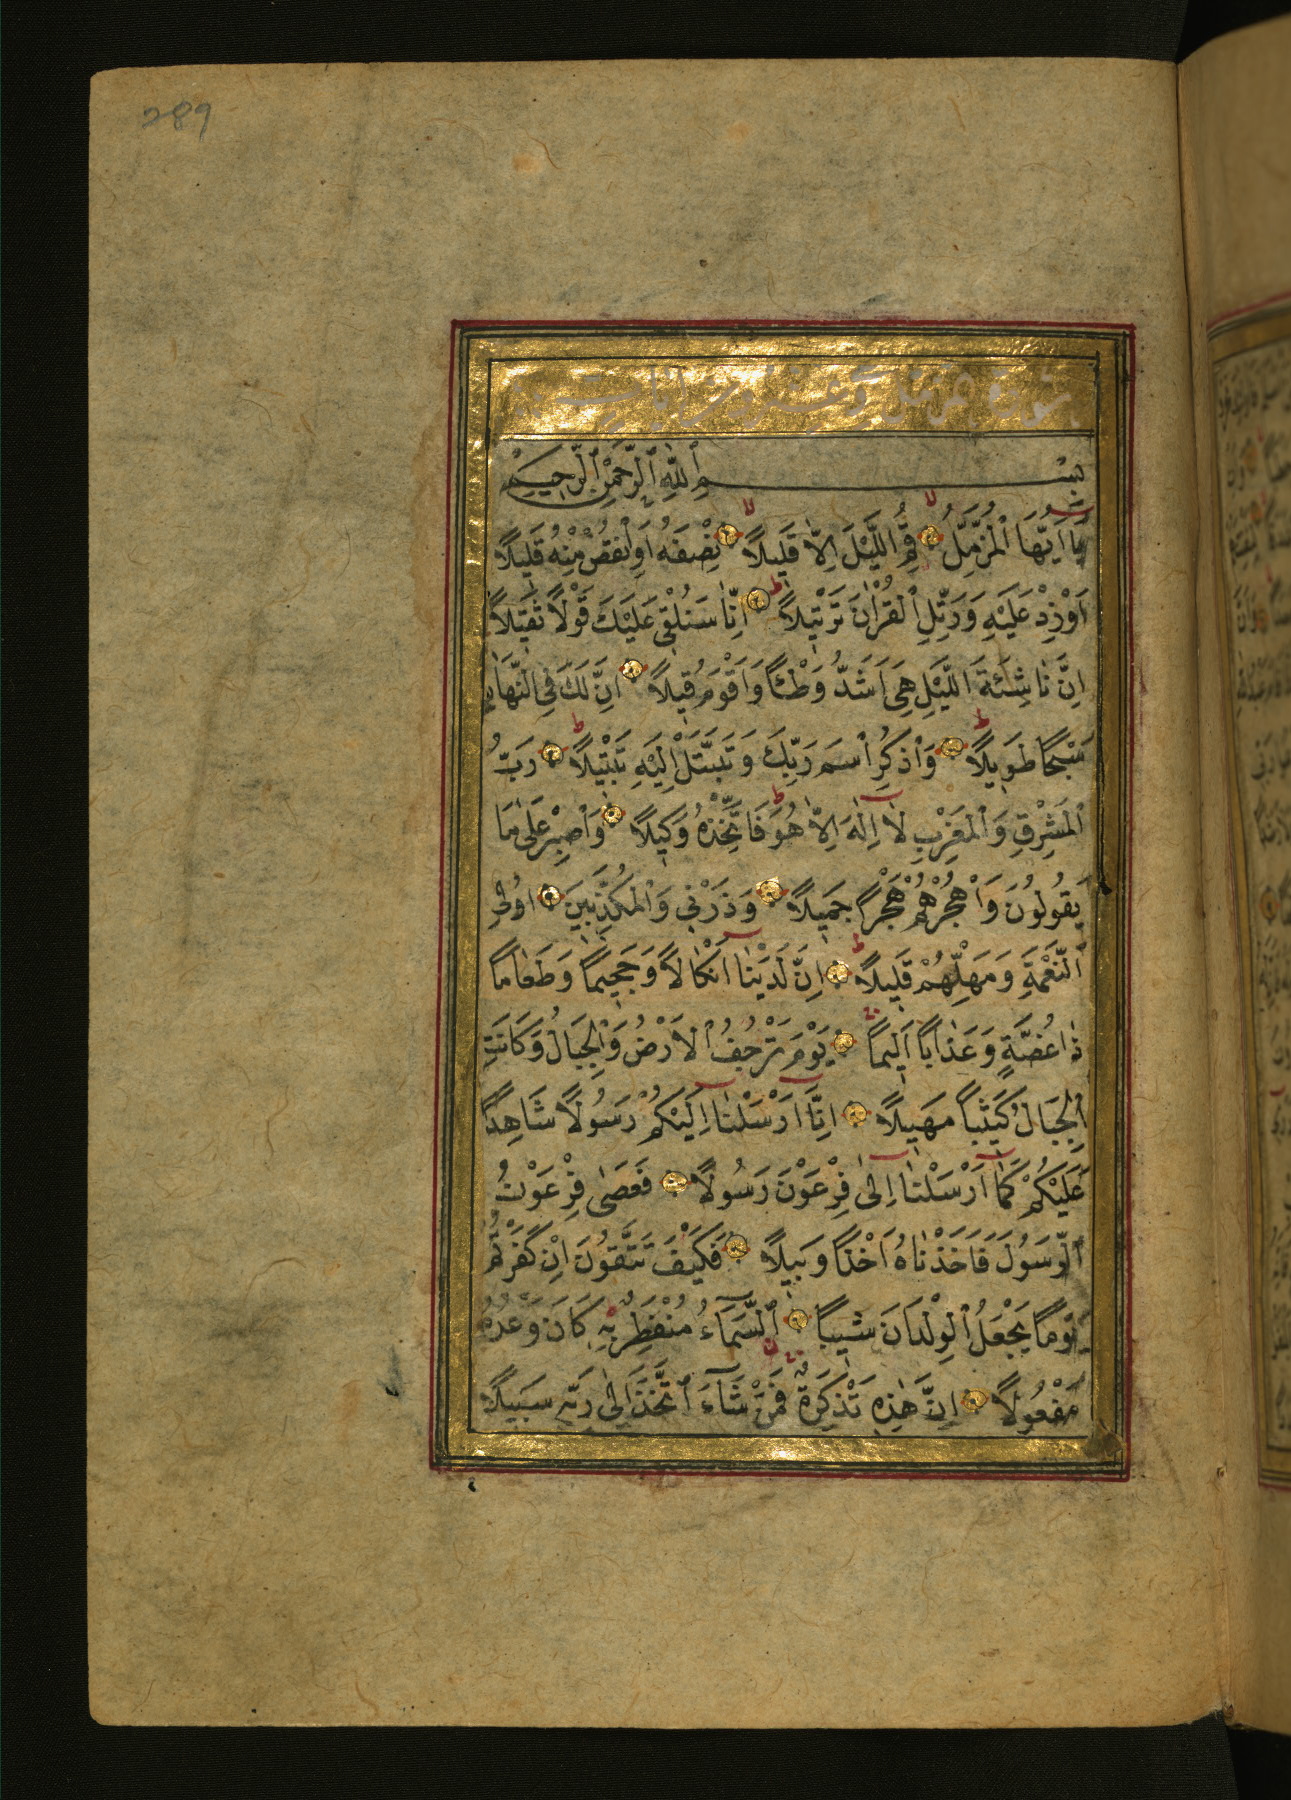 289
سورة مزمل وعشرون ايات
بِسْمِ ٱللّٰهِ ٱلرَّحْمٰنِ ٱلرَّحِيمِ
يَا اَيُّهَا ٱلْمُزَّمِّلُ قُمِ اللَّيْلَ اِلَّا قَلِيلًا نِصْفَهُ اَوِ ٱنْقُصْ مِنْهُ قَلِيلًا
اَوْ زِدْ عَلَيْهِ وَرَتِّلِ ٱلْقُرْاٰنَ تَرْتِيلًا اِنَّا سَنُلْقِى عَلَيْكَ قَوْلًا ثَقِيلًا
اِنَّ نَاشِئَةَ اللَّيْلِ هِىَ اَشَدُّ وَطْئًا وَاَقْوَمُ قِيلًا اِنَّ لَكَ فِى النَّهَارِ
سَبْحًا طَوِيلًا وَٱذْكُرِ ٱسْمَ رَبِّكَ وَتَبَتَّلْ اِلَيْهِ تَبْتِيلًا رَبُّ
ٱلْمَشْرِقِ وَٱلْمَغْرِبِ لَا اِلٰهَ اِلَّا هُوَ فَاتَّخِذْهُ وَكِيلًا وَٱصْبِرْ عَلٰى مَا
يَقُولُونَ وَٱهْجُرْهُمْ هَجْرًا جَمِيلًا وَذَرْنِى وَٱلْمُكَذِّبِينَ اُولِى
ٱلنَّعْمَةِ وَمَهِّلْهُمْ قَلِيلًا اِنَّ لَدَيْنَا اَنْكَالًا وَجَحِيمًا وَطَعَامًا
ذَا غُصَّةٍ وَعَذَابًا اَلِيمًا يَوْمَ تَرْجُفُ ٱلْاَرْضُ وَٱلْجِبَالُ وَكَانَتِ
ٱلْجِبَالُ كَثِيبًا مَهِيلًا اِنَّا اَرْسَلْنَا اِلَيْكُمْ رَسُولًا شَاهِدًا
عَلَيْكُمْ كَمَا اَرْسَلْنَا اِلٰى فِرْعَوْنَ رَسُولًا فَعَصٰى فِرْعَوْنُ
ٱلرَّسُولَ فَاَخَذْنَاهُ اَخْذًا وَبِيلًا فَكَيْفَ تَتَّقُونَ اِنْ كَفَرْتُمْ
يَوْمًا يَجْعَلُ ٱلْوِلْدَانَ شِيبًا ٱلسَّمَاءُ مُنْفَطِرٌ بِهِ كَانَ وَعْدُهُ
مَفْعُولًا اِنَّ هٰذِهِ تَذْكِرَةٌ فَمَنْ شَاءَ ٱتَّخَذَ اِلٰى رَبِّهِ سَبِيلًا